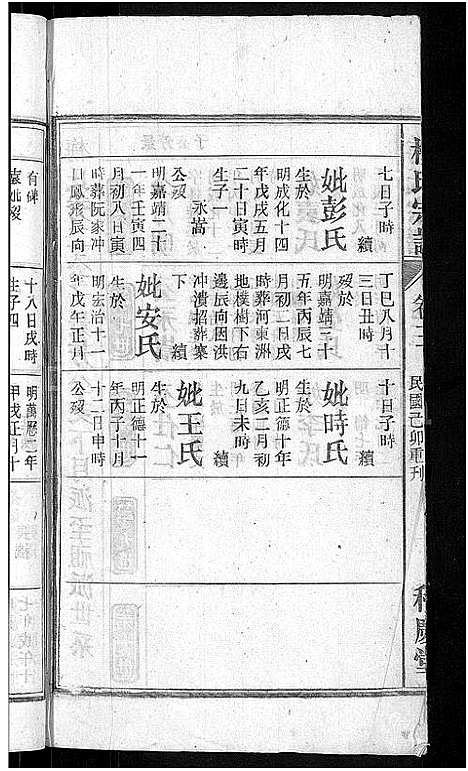 民國己卯重刊
七日子時
續
妣彭氏
生於
明成化十四
年戊戌五月
二十日寅時
生子一
永嵩
公歿
明嘉靖二十
一年壬寅四
月初八日寅
時葬阮家冲
丁巳八月十
三日丑時
歿於
明嘉靖三十
五年丙辰七
月初二日戌
時葬河東洲
地樸樹下右
邊辰向園洪
冲潰招葬寨
下
續
妣安氏
生於
明宏治十一
年戊午正月
十日子時
續
妣時氏
生於
明正德十年
乙亥二月初
九日未時
續
妣王氏
生於
明正德十一
年丙子十月
十二日申時
公歿
有碑
十八日戌時
生子四
明萬曆二年
甲戌正月十